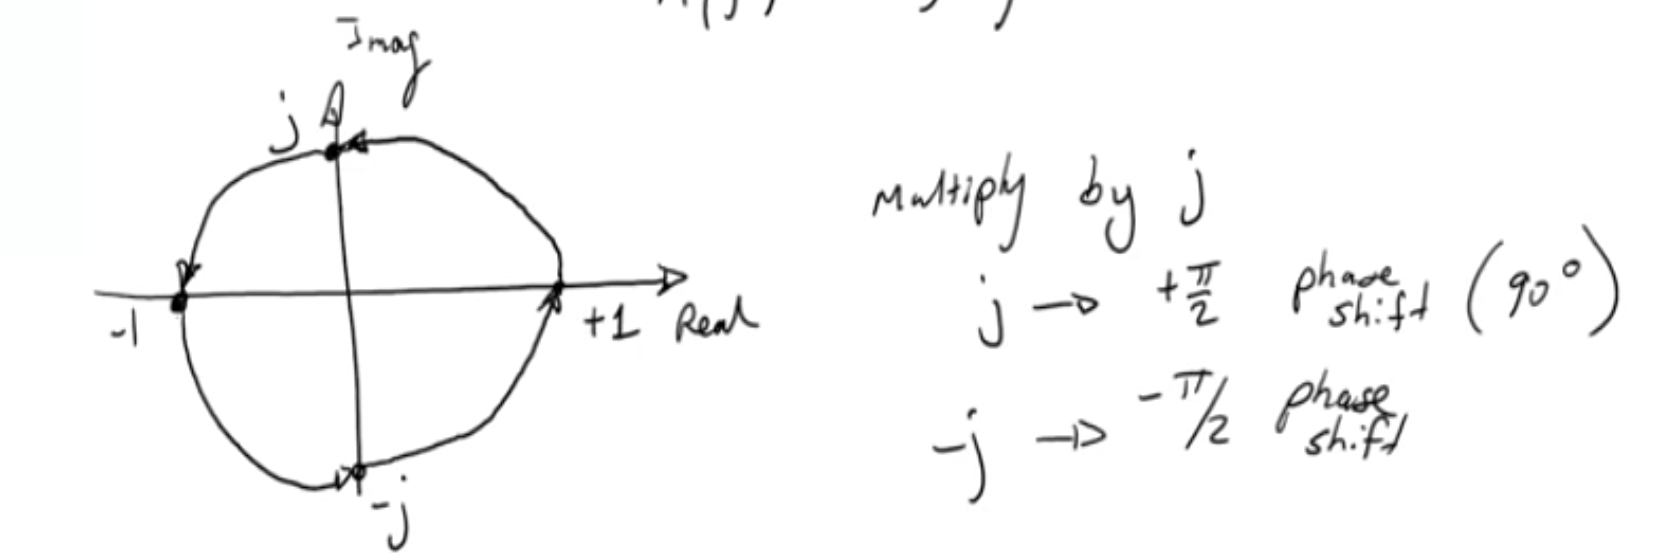 Imag
j
-1
+1 Real
-j
Multiply by j
j → +π/2 phase shift (90°)
-j → -π/2 phase shift